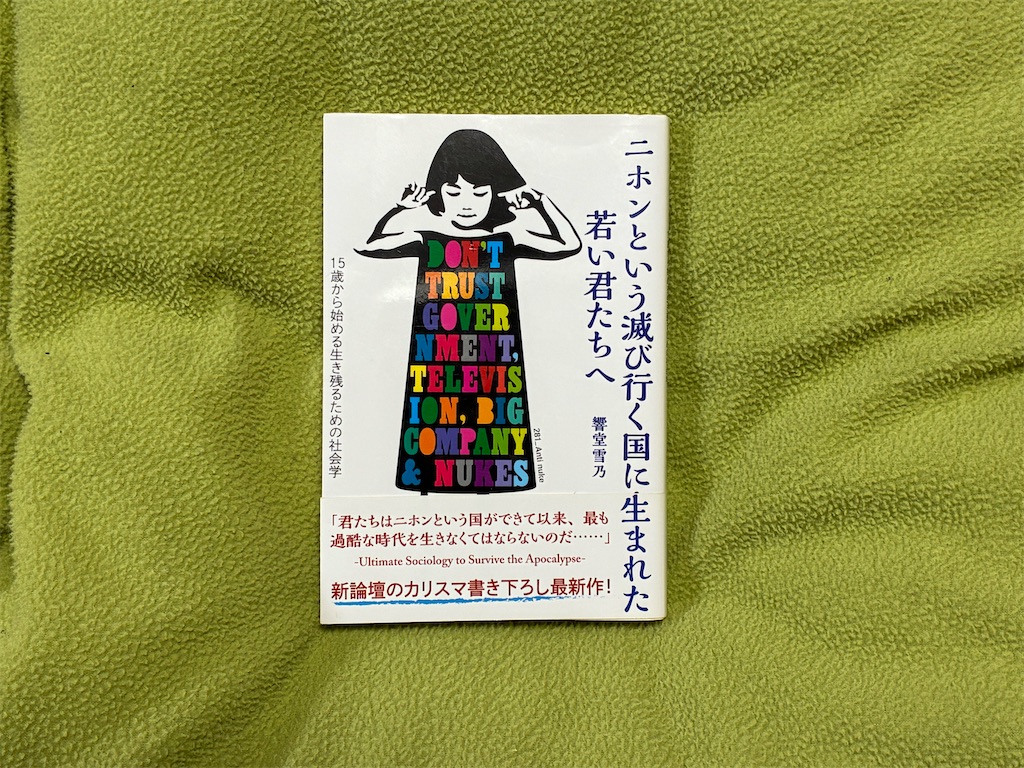 ニホンという滅び行く国に生まれた
若い君たちへ
響堂雪乃
15歳から始める生き残るための社会学
DON'T
TRUST
GOVER
NMENT,
TELEVIS
ION, BIG
COMPANY
& NUKES
281_Anti nuke
「君たちはニホンという国ができて以来、最も
過酷な時代を生きなくてはならないのだ……」
-Ultimate Sociology to Survive the Apocalypse-
新論壇のカリスマ書き下ろし最新作!